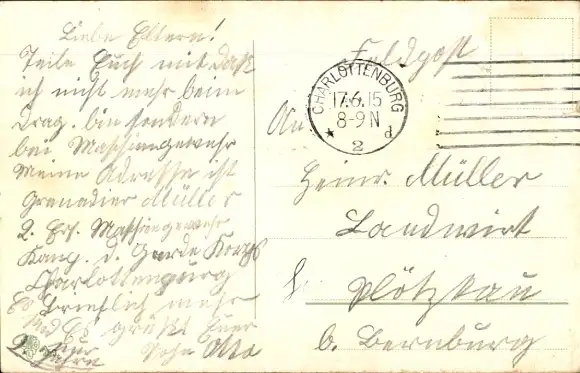 Liebe Eltern!
Teile Euch mit daß
ich nicht mehr beim
Drag. bin sondern
bei Maschiengewehr
Meine Adresse ist
Grenadier Müller
2. Ers. Maschiengewehr
Komp. d. Garde Korps
Charlottenburg
Brieflich mehr
und Es grüßt Euer
Sohn Otto
Feldpost
CHARLOTTENBURG
17.6.15
8-9N
* 2 d
An
Heinr. Müller
Landwirt
Plötzkau
b. Bernburg